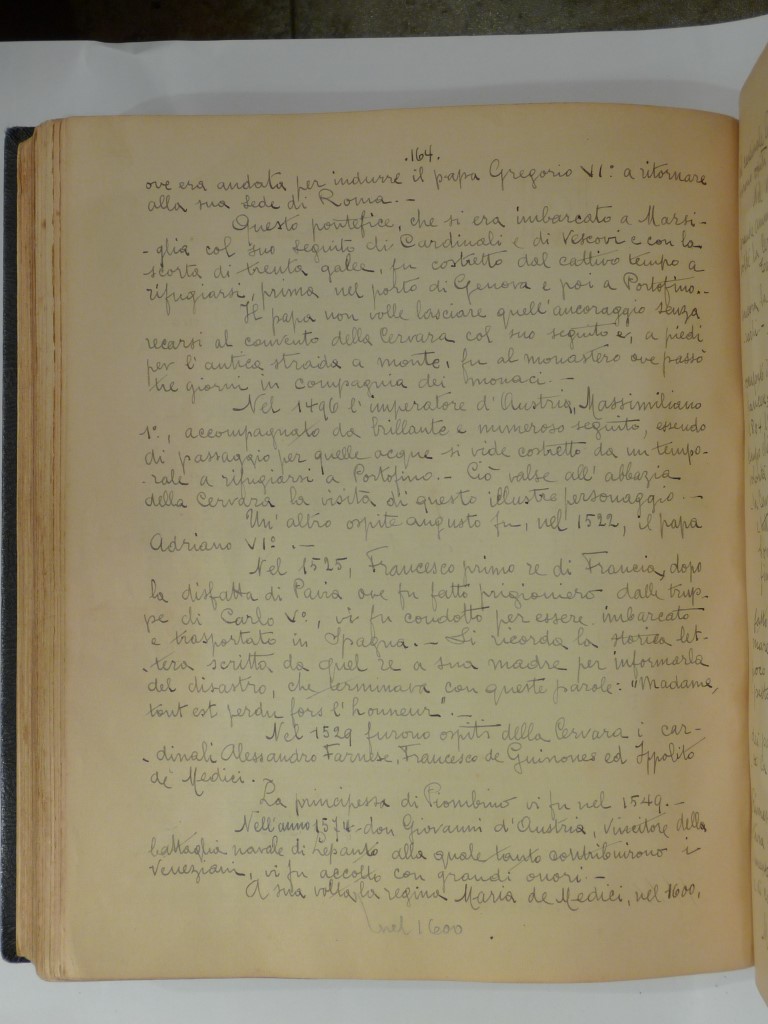 .164.
ove era andata per indurre il papa Gregorio VI° a ritornare
alla sua sede di Roma. -
Questo pontefice, che si era imbarcato a Marsi-
-glia col suo seguito di Cardinali e di Vescovi e con la
scorta di trenta galee, fu costretto dal cattivo tempo a
rifugiarsi, prima nel porto di Genova e poi a Portofino. -
Il papa non volle lasciare quell'ancoraggio senza
recarsi al convento della Cervara col suo seguito e, a piedi
per l'antica strada a monte, fu al monastero ove passò
tre giorni in compagnia dei monaci. -
Nel 1496 l'imperatore d'Austria, Massimiliano
1°, accompagnato da brillante e numeroso seguito, essendo
di passaggio per quelle acque si vide costretto da un tempo-
-rale a rifugiarsi a Portofino. - Ciò valse all'abbazia
della Cervara la visita di questo illustre personaggio. -
Un'altro ospite augusto fu, nel 1522, il papa
Adriano VI°. -
Nel 1525, Francesco primo re di Francia, dopo
la disfatta di Pavia ove fu fatto prigioniero dalle trup-
pe di Carlo V°, vi fu condotto per essere imbarcato
e trasportato in Spagna. - Si ricorda la storica let-
-tera scritta da quel re a sua madre per informarla
del disastro, che terminava con queste parole: "Madame,
tout est perdu fors l'honneur". -
Nel 1529 furono ospiti della Cervara i car-
-dinali Alessandro Farnese, Francesco de Guinones ed Ippolito
de' Medici. -
La principessa di Piombino vi fu nel 1549. -
Nell'anno 1574 don Giovanni d'Austria, vincitore della
battaglia navale di Lepanto alla quale tanto contribuirono i
Veneziani, vi fu accolto con grandi onori -
A sua volta la regina Maria de Medici, nel 1600,
nel 1600